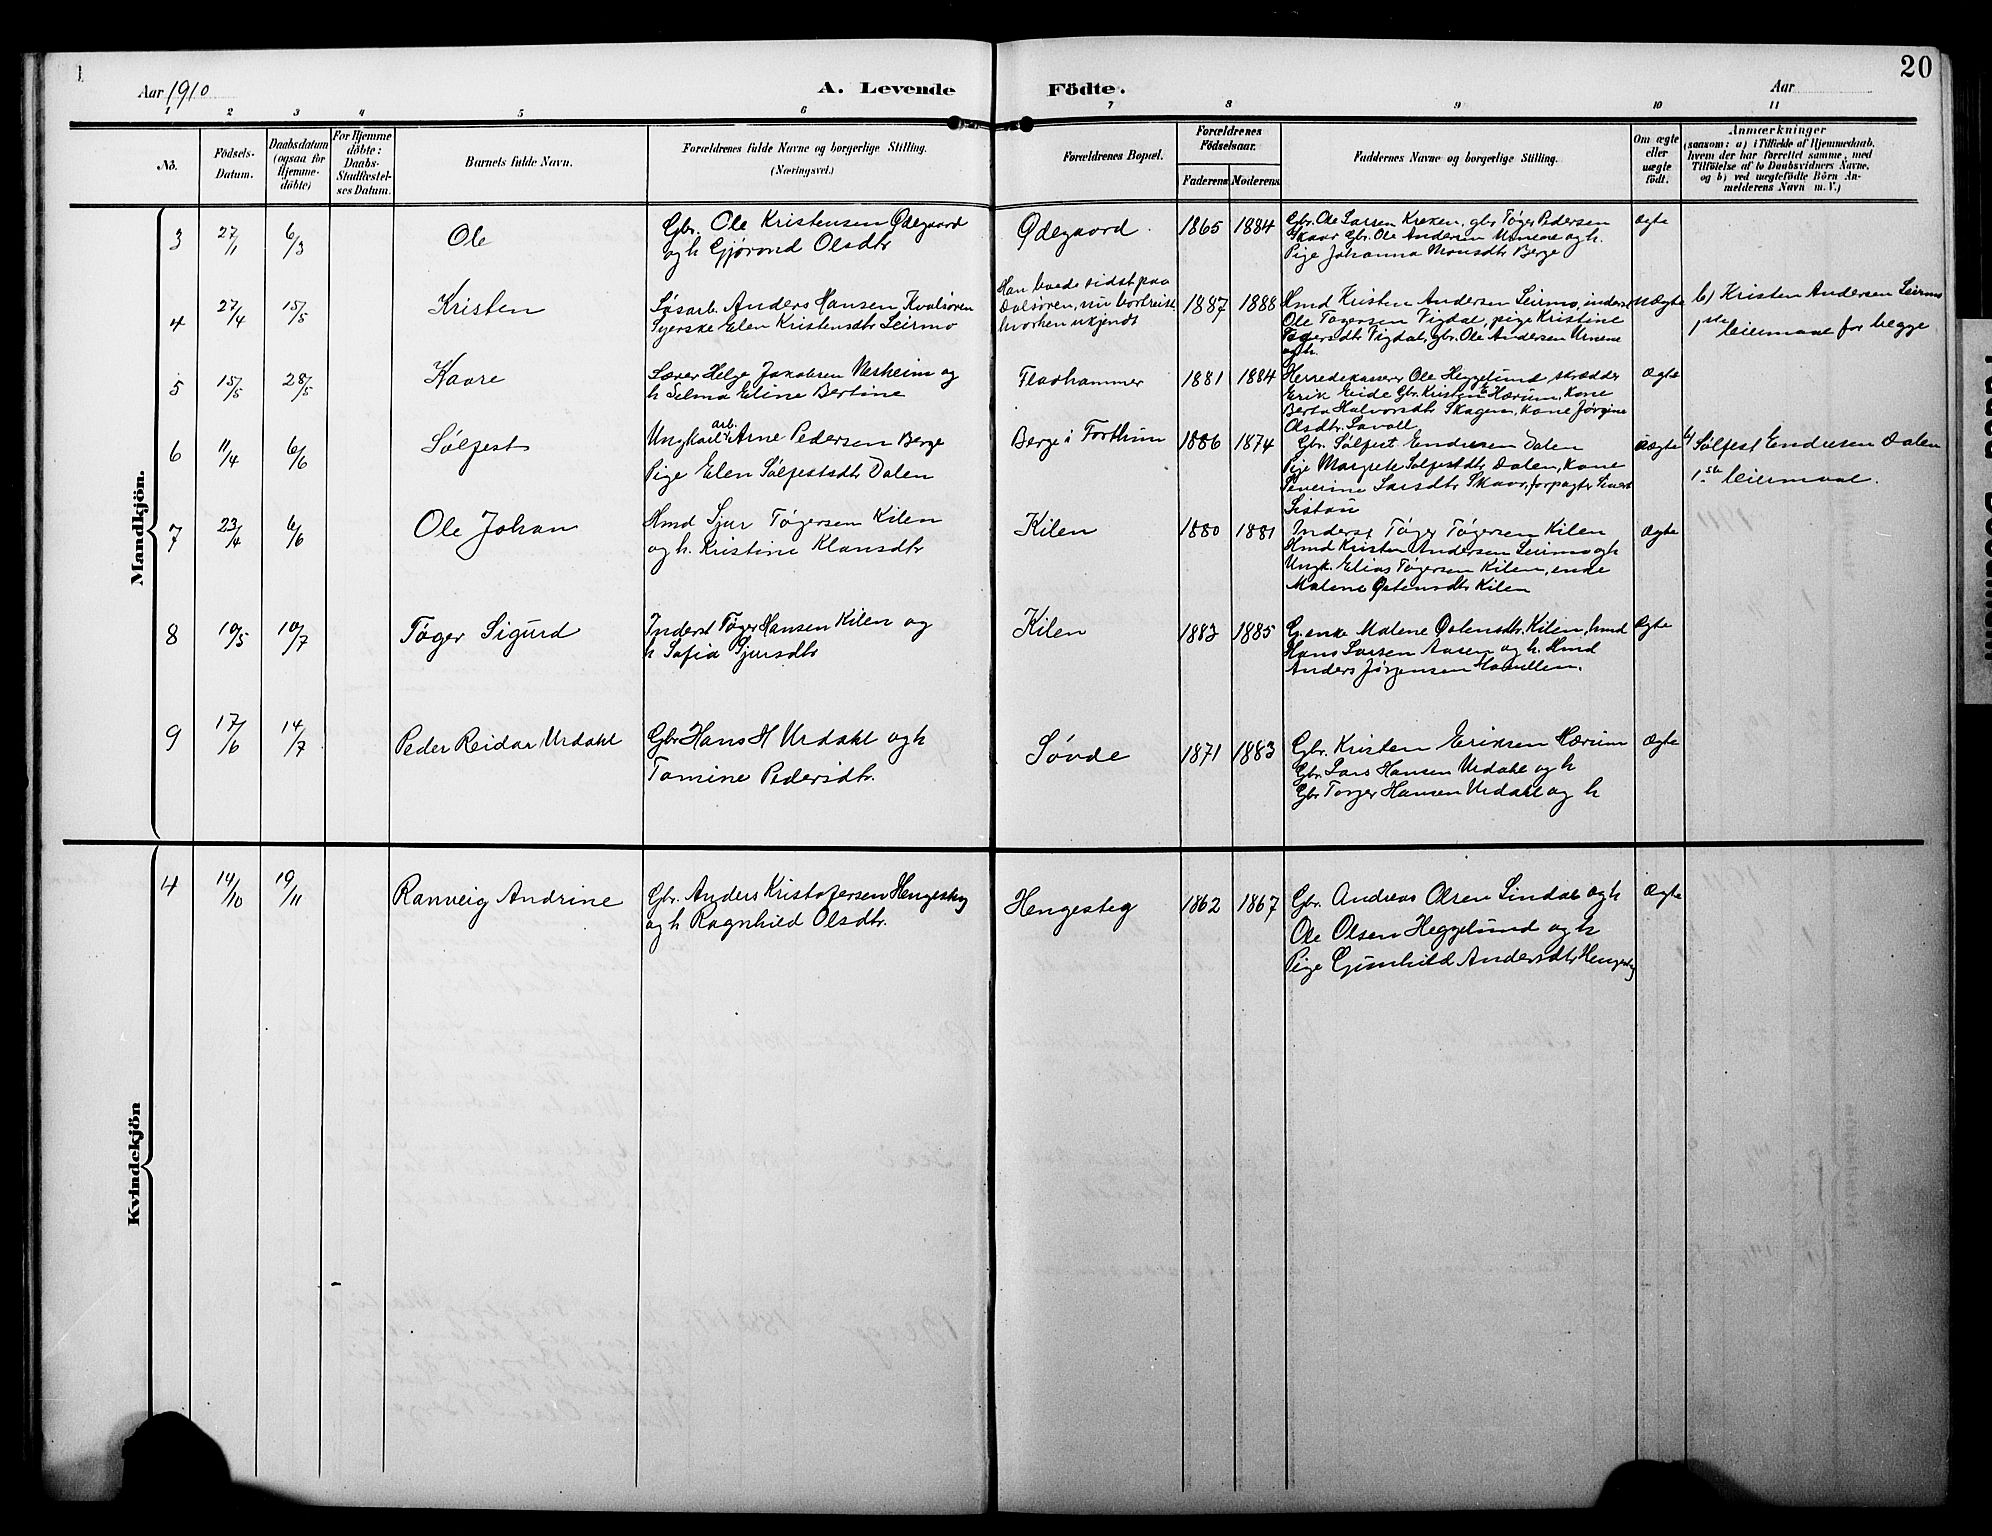 1
20
Aar 1910
A. Levende Födte.
Aar
1 2 3 4 5 6 7 8 9 10 11
Nó.
Födsels-
Datum.
Daabsdatum
(ogsaa for
Hjemme-
döbte)
For Hjemme
döbte:
Daabs-
Stadfæstel-
ses Datum.
Barnets fulde Navn.
Forældrenes fulde Navne og borgerlige Stilling.
(Næringsvei.)
Forældrenes Bopæl.
Forældrenes
Födselsaar.
Faderens. Moderens.
Faddernes Navne og borgerlige Stilling.
Om ægte
eller
uægte
födt.
Anmærkninger
(saasom: a) i Tilfælde af Hjemmedaab,
hvem der har forrettet samme, med
Tilföielse af to Daabsvidners Navne,
og b) ved uægtefödte Börn An-
melderens Navn m. V.)
Mandkjön.
3 27/1 6/3 Ole
Gbr. Ole Kristensen Ødegaard
og h Gjørond Olsdtr
Ødegaard. 1865 1884
Gbr. Ole Larsen Kreken, gbr Tøger Pedersen
Skaar Gbr. Ole Andersen Urnene og h.
Pige Johanna Monsdtr Berge
ægte
4 27/4 15/5 Kristen
Løsarb. Anders Hansen Kvalsøren
Syerske Elen Kristensdtr Leirmo
Han boede sidst paa
Dalsøren, nu bortreist
hvorhen ukjendt
1887 1888
Hmd Kristen Andersen Leirmo, inderst
Ole Tøgersen Vigdal, pige Kristine
Vigdal, gbr. Ole Andersen Urnene
og h.
uægte
b) Kristen Andersen Leirmo
1ste leiermaal for begge
5 15/5 28/5 Kaare
Lærer Helge Jakobsen Nesheim og
h Selma Eline Bertine
Flaahammer 1881 1884
Herredskasserer Ole Heggelund skrædder
Erik Eide Gbr. Kristen E Hærum, Kone
Berta Halvorsdtr Skagen, Kone Jørgine
Olsdtr.
Ægte
6 11/4 6/6 Sølfest
Ungkarl arb. Arne Pedersen Berge
Pige Elen Sølfestsdtr Dalen
Berge i Forthun 1886 1874
Gbr. Sølfest Endresen Dalen
Pige Margrete Sølfestdtr Dalen, Kone
Severine Larsdtr Skaar, forpagter Sivert
uægte
b) Sølfest Endresen Dalen
1ste leiermaal.
7 23/4 6/6 Ole Johan
Hmd Sjur Tøgersen Kilen
og h. Kristine Klausdtr
Kilen 1880 1881
Inderst Tøger Tøgersen Kilen
Hmd Kristen Andersen Leirmo og h
Ungk. Elias Tøgersen Kilen, enke
Malene Østensdtr Kilen
Ægte
8 10/5 10/7 Tøger Sigurd
Inderst Tøger Hansen Kilen og
h Sofia Sjursdtr
Kilen 1883 1885
G. enke Malene Østensdtr. Kilen, hmd
Hans Larsen Aasen og h. Hmd
Anders Jørgensen
Ægte
9 17/6 14/7 Peder Reidar Urdahl
Gbr Hans H Urdahl og h
Tomine Pedersdtr.
Søvde 1871 1883
Gbr. Kristen Eriksen Hærum
Gbr. Lars Hansen Urdahl og h
Gbr Torger Hansen Urdahl og h
Ægte
Kvindekjön
4 14/10 19/11 Ranveig Andrine
Gbr. Anders Kristofersen Hengesteg
og h Ragnhild Olsdtr.
Hengesteg 1862 1867
Gbr. Andreas Olsen Lindal og h
Ole Olsen Heggelund og h
Pige Gunhild Andersdtr Hengesteg
Ægte